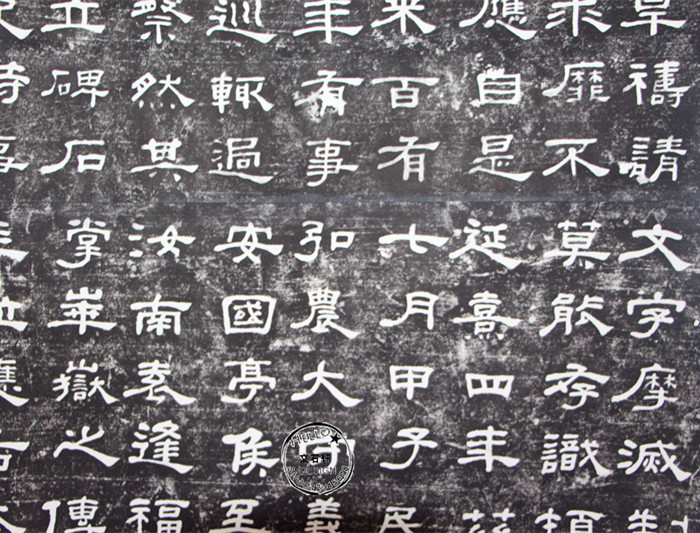 旱禱請文字摩滅
求靡不莫能存識
應自是延熹四年
来百有七月甲子民
年有事弘農大義
巡輒過安國亭侯至
祭然其汝南袁逢福
立碑石掌華嶽之傳
時